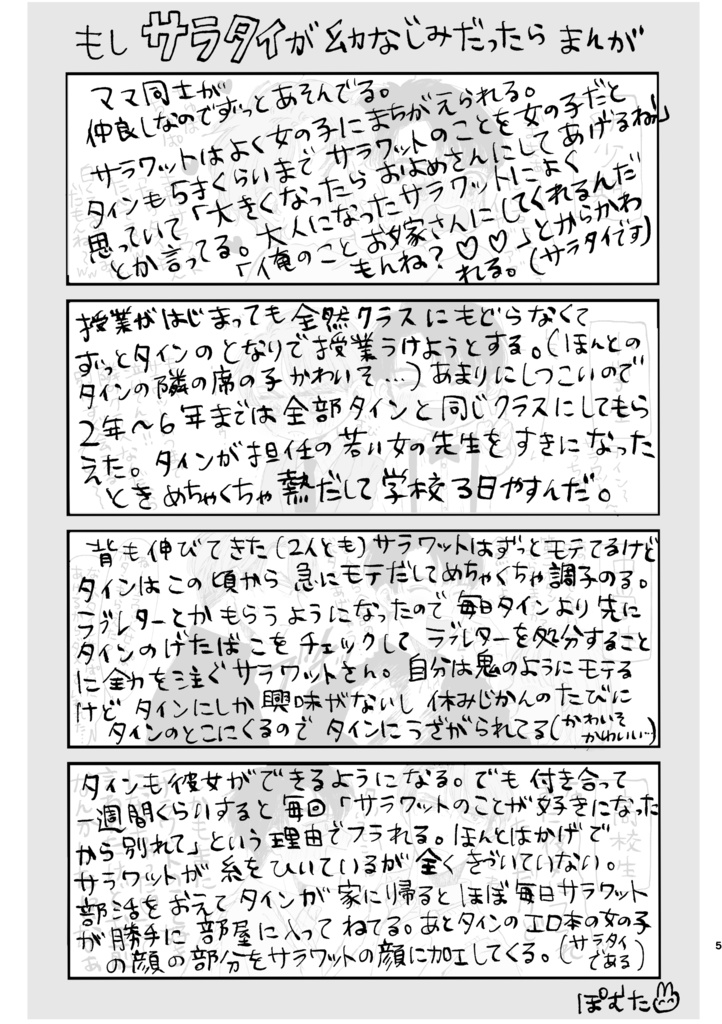 もし サラタイが 幼なじみだったら まんが
ママ同士が
仲良しなのでずっとあそんでる。
サラワットはよく女の子にまちがえられる。
タインも5才くらいまで サラワットのことを女の子だと
思っていて「大きくなったら およめさんにしてあげるね」
とか言ってる。大人になったサラワットによく
「俺のこと お嫁さんにしてくれるんだ
もんね?♡♡」とからかわ
れる。(サラタイです)
授業がはじまっても 全然クラスにもどらなくて
ずっとタインのとなりで授業うけようとする。(ほんとの
タインの隣の席の子かわいそ…)あまりにしつこいので
2年〜6年までは全部タインと同じクラスにしてもら
えた。タインが担任の若い女の先生をすきになった
ときめちゃくちゃ熱だして学校3日やすんだ。
背も伸びてきた(2人とも)サラワットはずっとモテてるけど
タインはこの頃から急にモテだしてめちゃくちゃ調子のる。
ラブレターとかもらうようになったので毎日タインより先に
タインのげたばこをチェックして ラブレターを処分すること
に全力を注ぐサラワットさん。自分は鬼のようにモテる
けど タインにしか興味がないし 休みじかんのたびに
タインのとこにくるので タインにうざがられてる(かわいそ
かわいい…)
タインも彼女ができるようになる。でも 付き合って
一週間くらいすると毎回「サラワットのことが好きになった
から別れて」という理由でフラれる。ほんとはかげで
サラワットが糸をひいているが全くきづいていない。
部活をおえてタインが家に帰るとほぼ毎日サラワット
が勝手に部屋に入ってねてる。あとタインのエロ本の女の子
の顔の部分をサラワットの顔に加工してくる。(サラタイ
である)
ぽむた
5